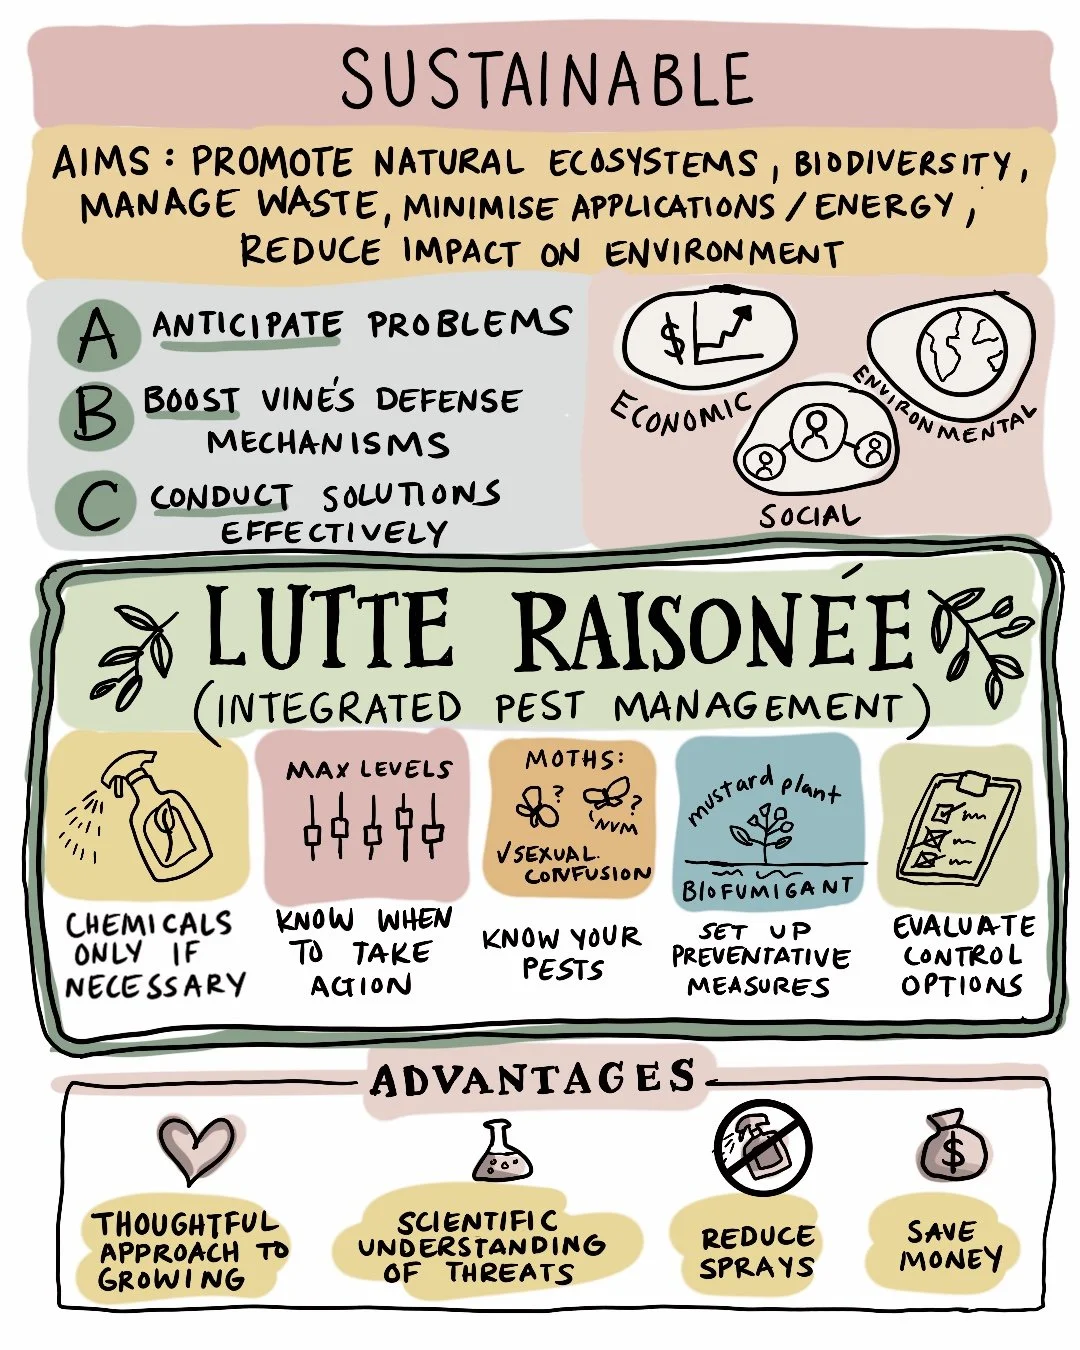 SUSTAINABLE
AIMS: PROMOTE NATURAL ECOSYSTEMS, BIODIVERSITY,
MANAGE WASTE, MINIMISE APPLICATIONS/ENERGY,
REDUCE IMPACT ON ENVIRONMENT
A ANTICIPATE PROBLEMS
B BOOST VINE'S DEFENSE
MECHANISMS
C CONDUCT SOLUTIONS
EFFECTIVELY
$
ECONOMIC
ENVIRONMENTAL
SOCIAL
LUTTE RAISONÉE
(INTEGRATED PEST MANAGEMENT)
CHEMICALS
ONLY IF
NECESSARY
MAX LEVELS
KNOW WHEN
TO TAKE
ACTION
MOTHS:
? ?
NVM
√SEXUAL
CONFUSION
KNOW YOUR
PESTS
mustard plant
BIOFUMIGANT
SET UP
PREVENTATIVE
MEASURES
EVALUATE
CONTROL
OPTIONS
ADVANTAGES
THOUGHTFUL
APPROACH TO
GROWING
SCIENTIFIC
UNDERSTANDING
OF THREATS
REDUCE
SPRAYS
$
SAVE
MONEY